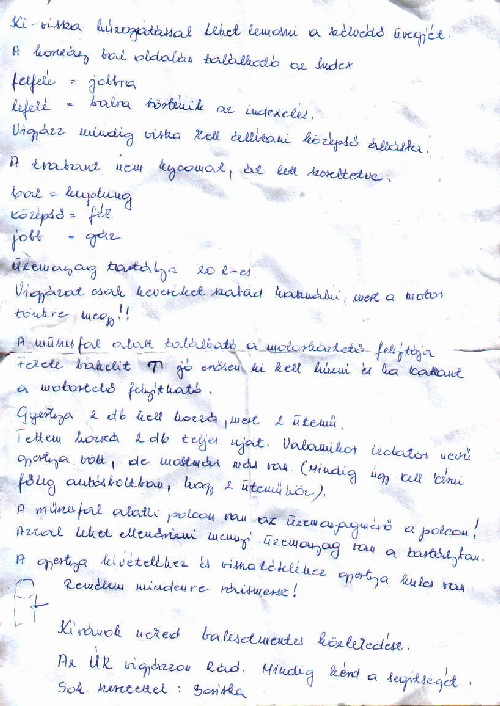 Ki-vissza húzogatással lehet lemosni a szélvédő üvegjét.
A kormány bal oldalán található az index
felfelé = jobbra
lefelé = balra történik az indexelés.
Vigyázz mindig vissza kell állítani középső állásba.
A trabant nem nyomat, de kell szeretetve.
bal = kuplung
középső = fék
jobb = gáz
Üzemanyag tartálya 20 l-es
Vigyázat csak keveréket szabad használni, mert a motor
tönkre megy!!
A műszerfal alatt található a motorháztető felnyitója
Fekete bakelit T jó erősen ki kell húzni és ha kattant
a motortető felnyitható.
Gyertya 2 db kell hozzá, mert 2 ütemű.
Tettem hozzá 2 db teljes ujat. Valamikor Izolator nevű
gyertya volt, de mostmár más van. (Mindig úgy kell kérni
főleg autósboltban, hogy 2 üteműhöz).
A műszerfal alatti polcon van az üzemanyagmérő a polcon!
Azzal lehet ellenőrizni mennyi üzemanyag van a tartályban.
A gyertya kivételhez és visszatételhez gyertya kulcs van
Remélem mindenre
Kívánok neked balesetmentes közlekedést.
Az ÚR vigyázzon Rád. Mindig kérd a segítségét.
Sok szeretettel: Boriska